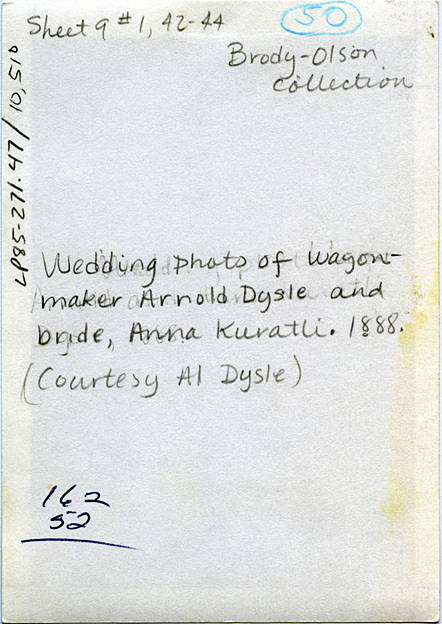 Sheet 9 #1, 42-44
50
Brody-Olson
collection
LP85-271.47/10,510
Wedding photo of Wagon-
maker Arnold Dysle and
bride, Anna Kuratli. 1888.
(Courtesy Al Dysle)
162
52